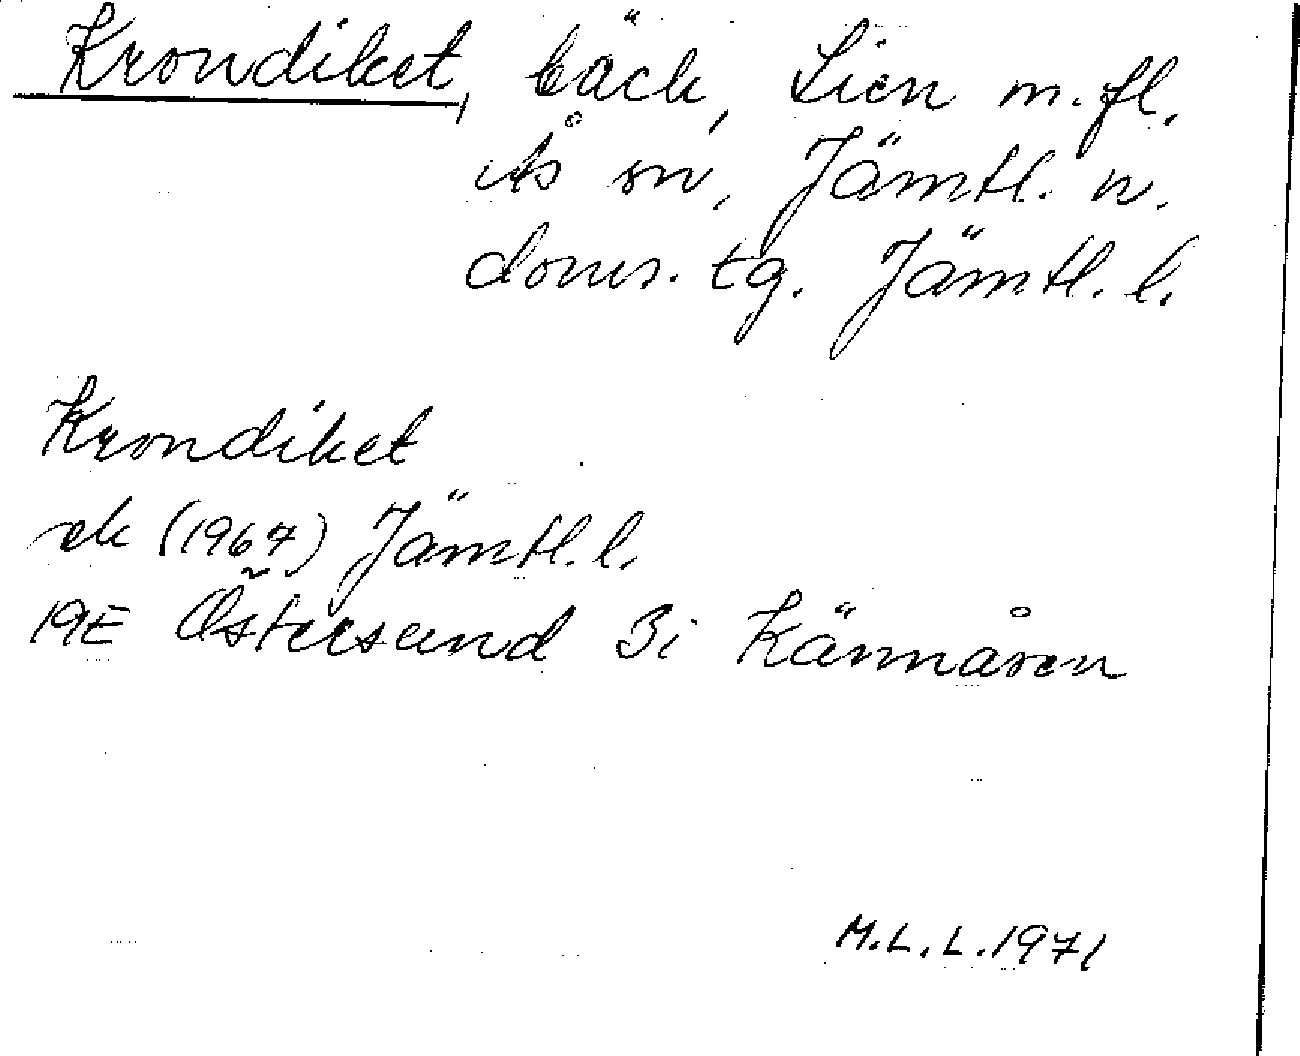 Krondiket, bäck, Lien m. fl.
Ås sn, Jämtl. n.
doms. tg. Jämtl. l.
Krondiket
ek (1967) Jämtl. l.
19E Östersund 3i Kännåsen
M.L.L. 1971